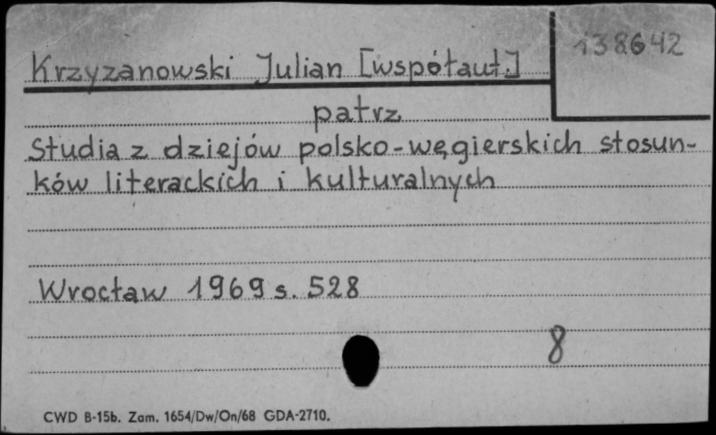 138642
Krzyzanowski Julian [współaut.]
patrz
Studia z dziejów polsko-węgierskich stosun-
ków literackich i kulturalnych
Wrocław 1969 s. 528
8
CWD B-15b. Zam. 1654/Dw/On/68 GDA-2710.